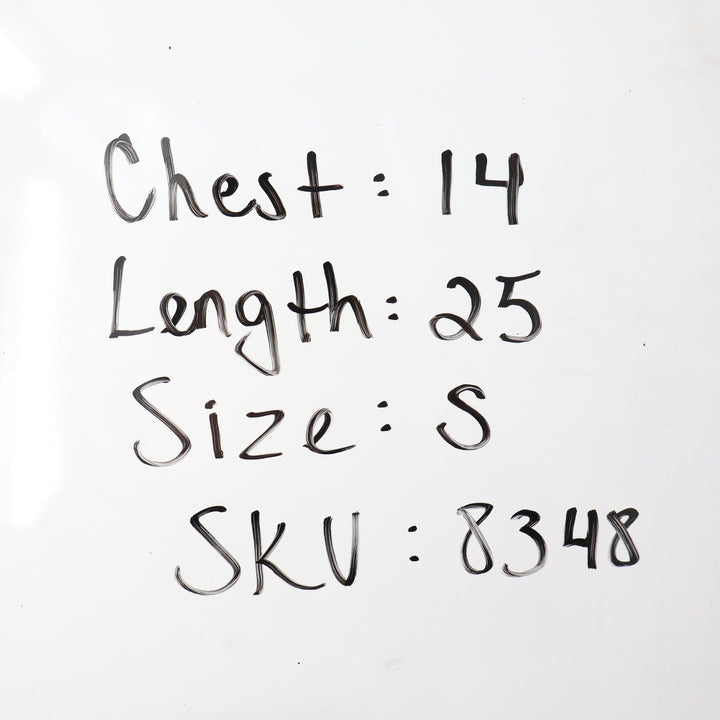 Chest: 14
Length: 25
Size: S
SKU: 8348